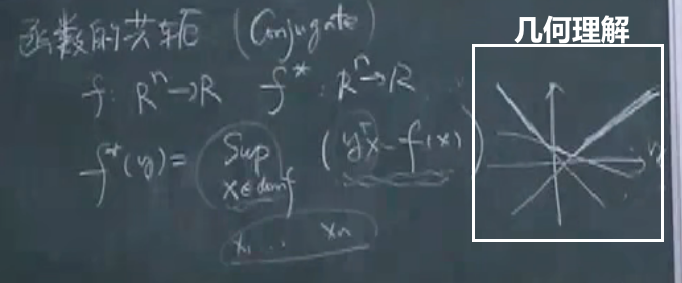 函数的共轭 (Conjugate)
几何理解
f: Rⁿ→R f*: Rⁿ→R
f*(y)= Sup x∈domf (yᵀx-f(x))
y
x₁ .. xₙ